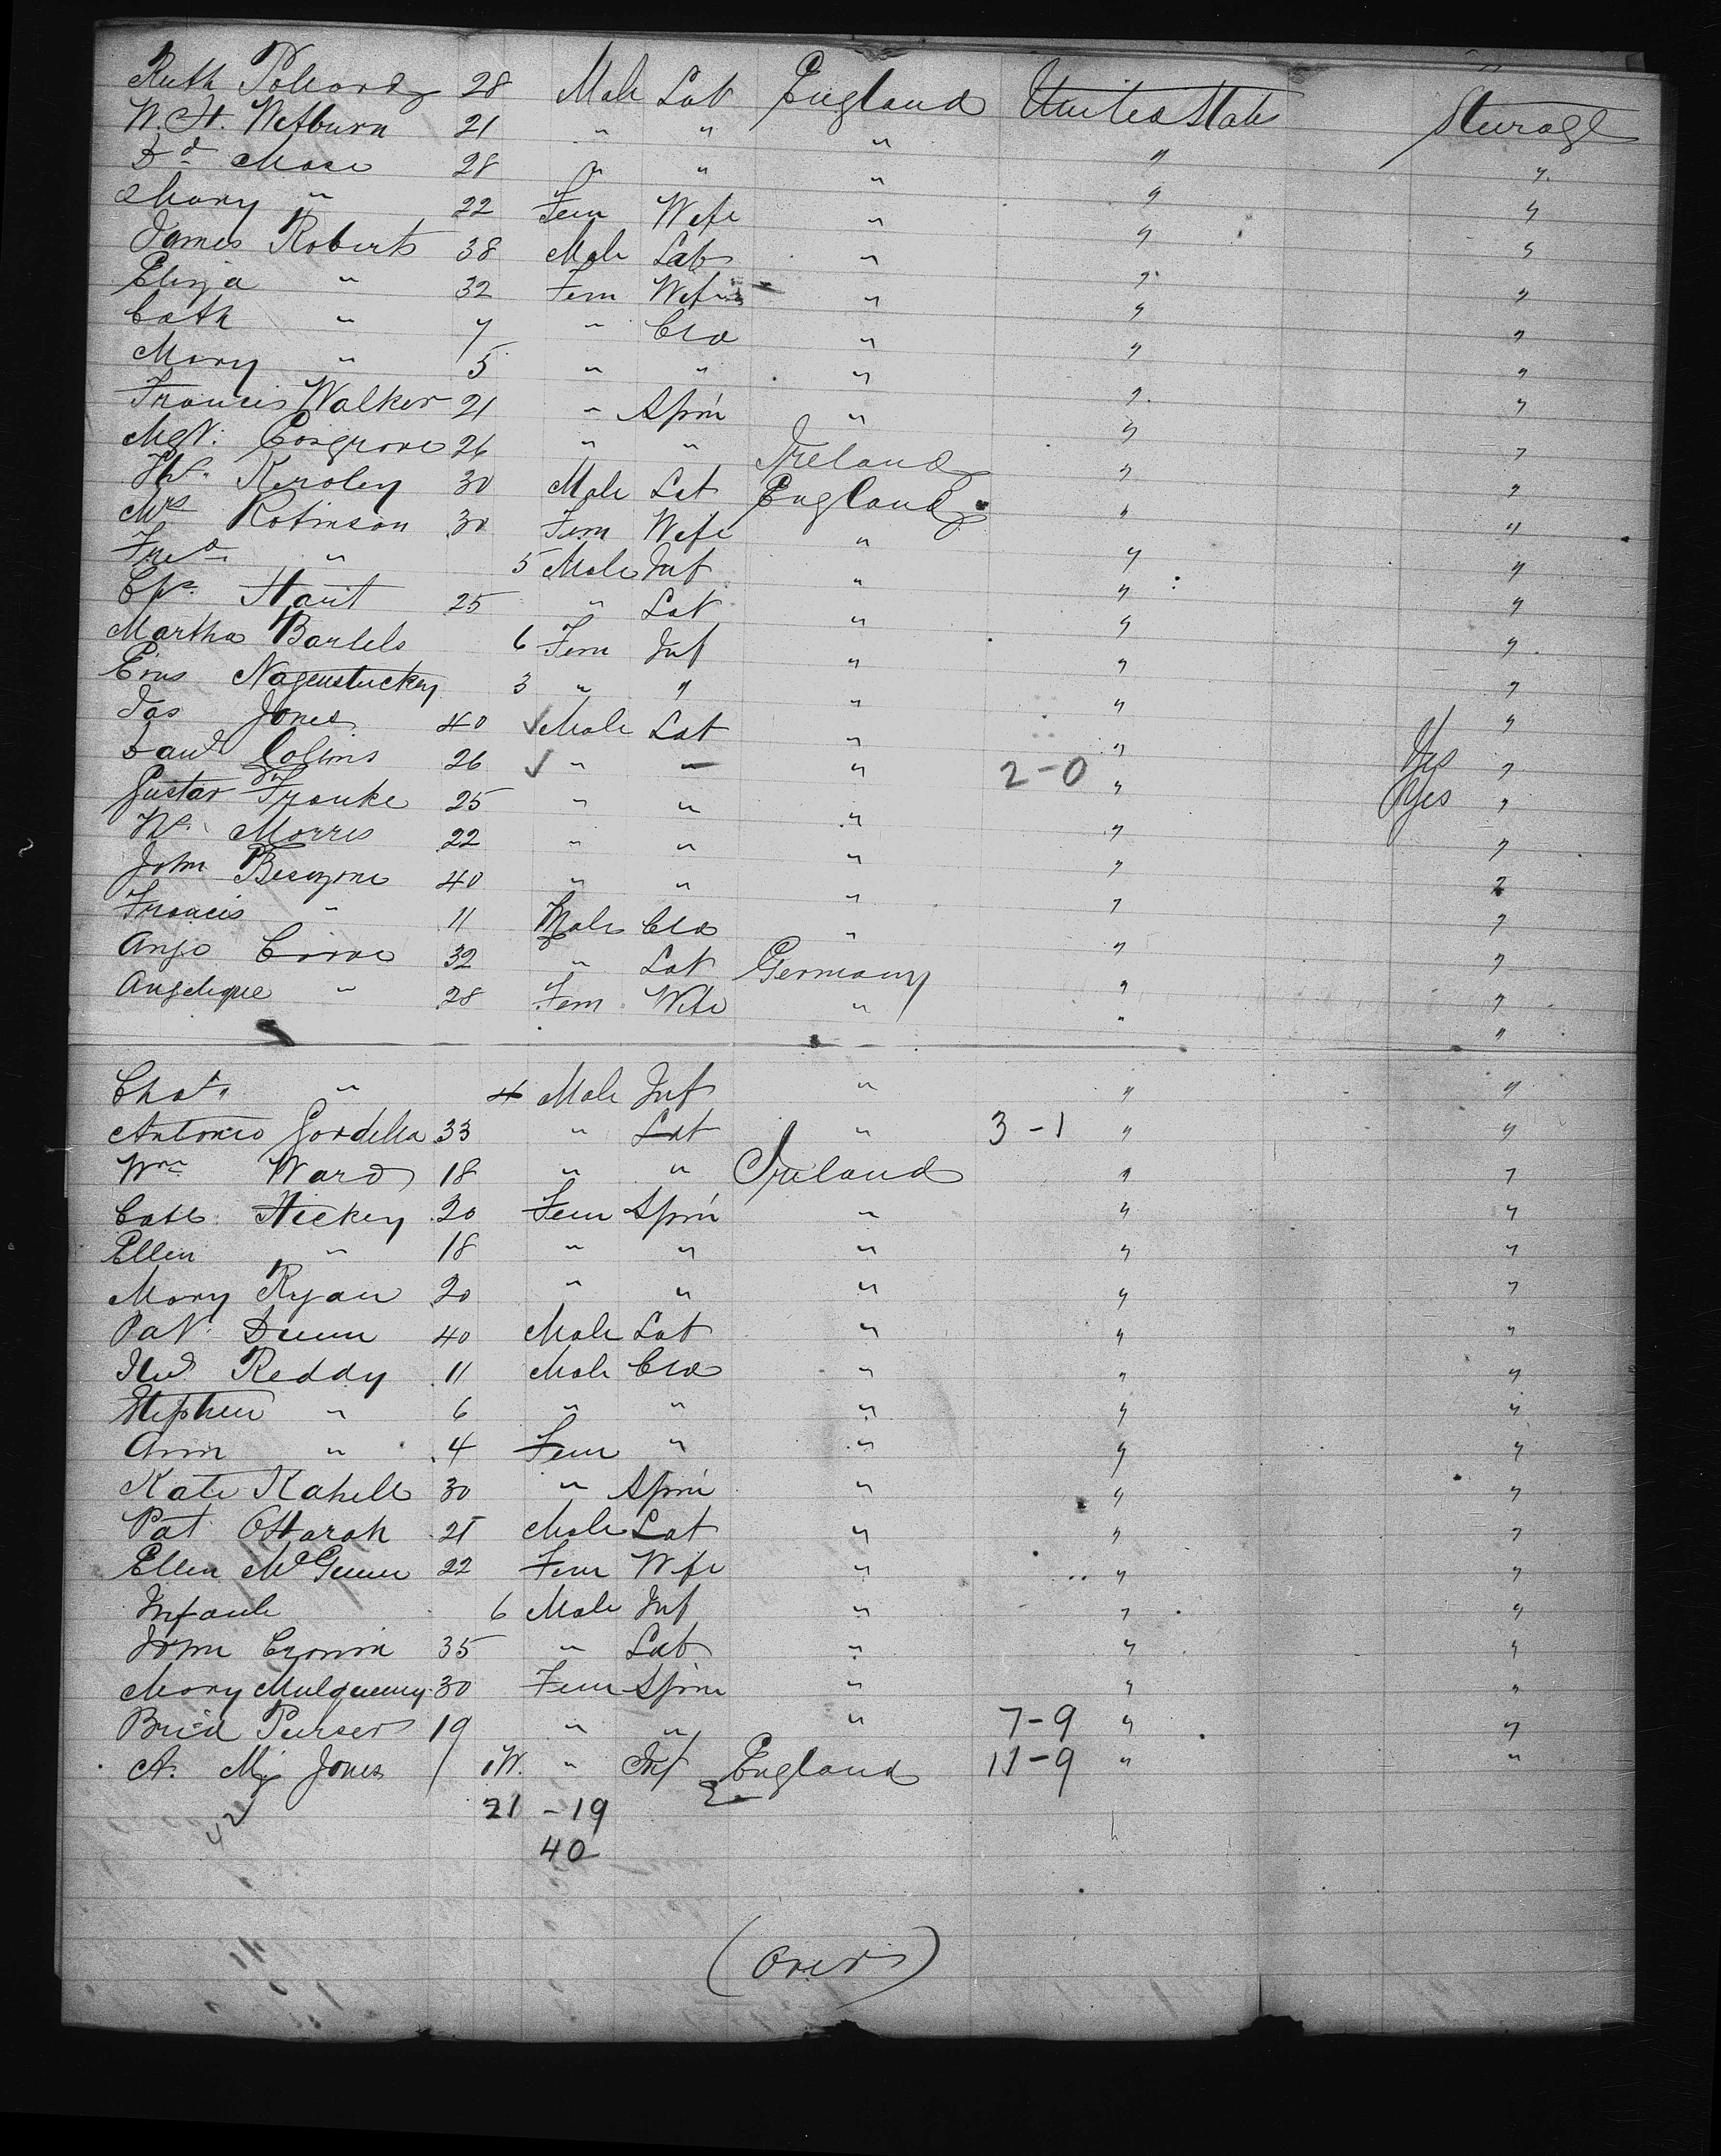 Ruth 28 Male Lab England United States Steerage
W. H. 21 " " " " "
Ed Mace 28 " " " " "
Mary " 22 Fem Wife " " "
James Roberts 38 Male Lab " " "
Eliza " 32 Fem Wife " " "
Cath " 7 " Cld " " "
Mary " 5 " " " " "
Francis Walker 21 " Spin " " "
Mgt. Cosgrove 26 " " Ireland " "
30 Male Lab England " "
Mrs Robinson 30 Fem Wife " " "
Fred. " 5 Male Inf " " "
25 " Lab " " "
Martha Bartels 6 Fem Inf " " "
3 " " " " "
Jas Jones 40 ✓ Male Lab " " Yes "
Danl Collins 26 ✓ " " " 2-0 " Yes "
Gustav Franke 25 " " " " "
Morris 22 " " " " "
John 40 " " " " "
Francis " 11 Male Cld " " "
32 " Lab Germany " "
Angelique " 28 Fem Wife " " "
Chas. " 4 Male Inf " " "
Antonio Gordella 33 " Lab " 3-1 " "
Wm Ward 18 " " Ireland " "
Cath. Hickey 20 Fem Spin " " "
Ellen " 18 " " " " "
Mary Ryan 20 " " " " "
Pat. Dunn 40 Male Lab " " "
Reddy 11 Male Cld " " "
Stephen " 6 " " " " "
Ann " 4 Fem " " " "
Kate Kahill 30 " Spin " " "
Pat OHarah 21 Male Lab " " "
Ellen McGunn 22 Fem Wife " " "
Infant 6 Male Inf " " "
John Cronin 35 " Lab " " "
Mary Mulqueeny 30 Fem Spin " " "
Brid Purser 19 " " " 7-9 " "
A. Jones / W. " Inf England 11-9 " "
42 21-19
40
(over)